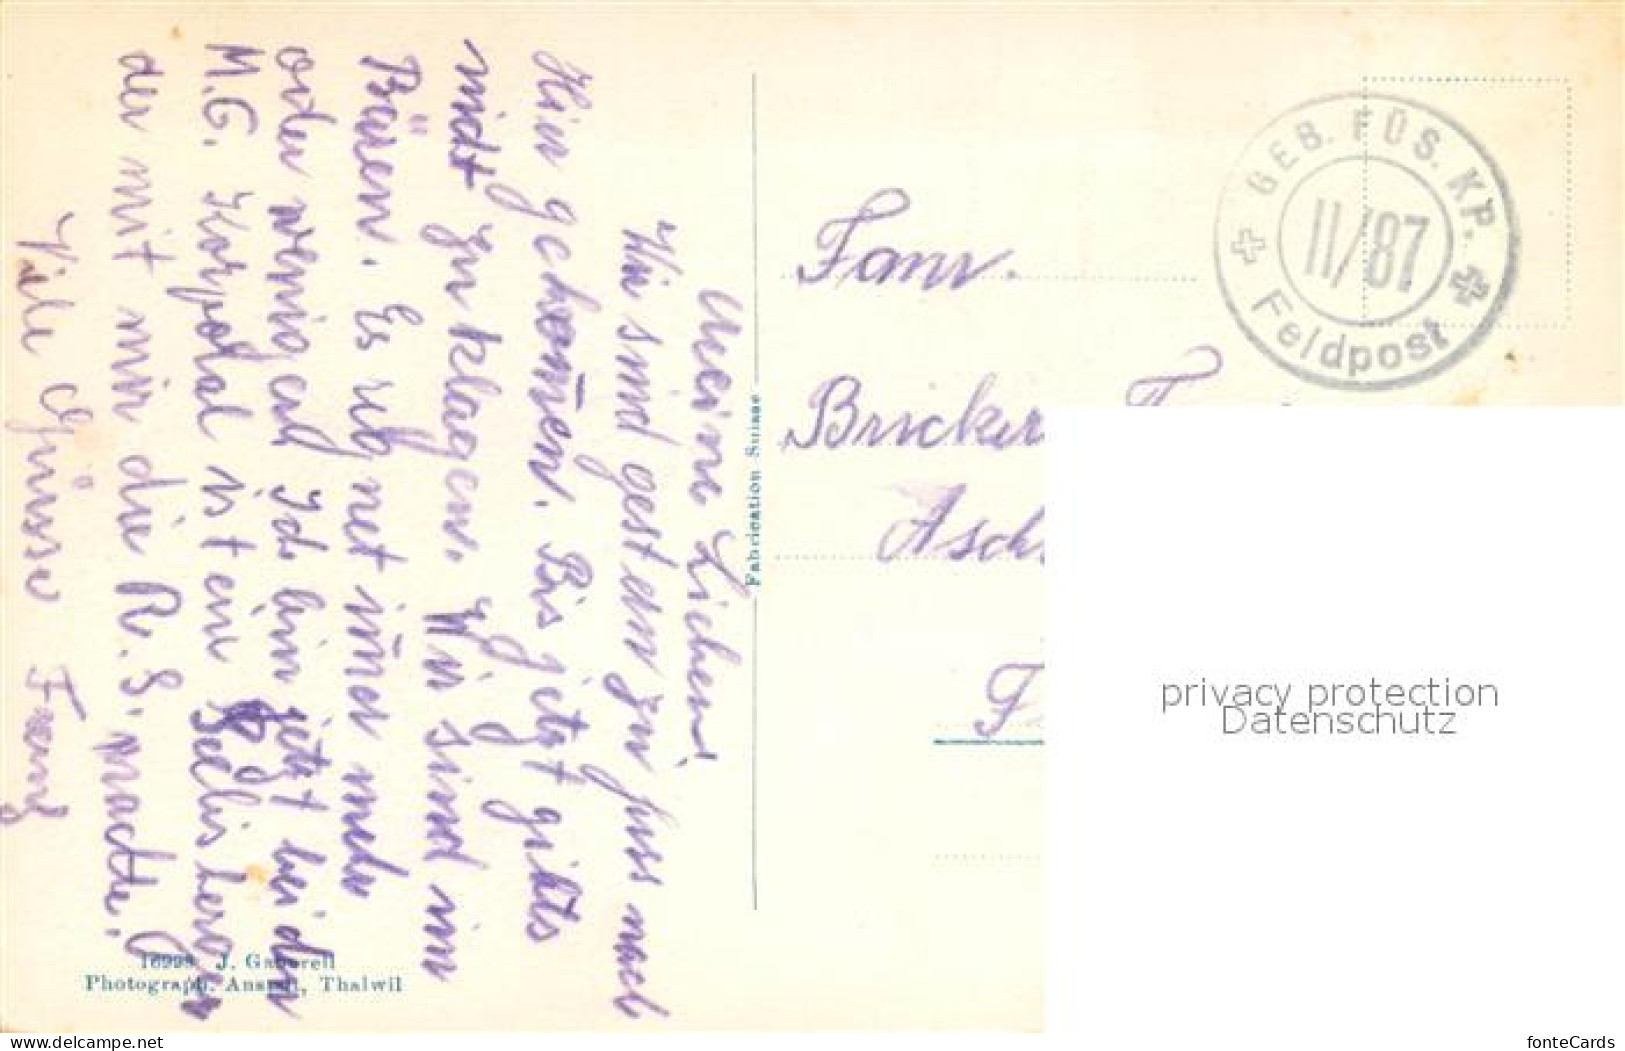 Meine Lieben!
Wir sind gestern zu fuss nach
Hin gekom̄en. Bis jetzt gibts
nicht zu klagen. Wir sind im
Bären. Es regnet im̄er mehr
oder wenig. Ich bin jetzt bei den
M.G. Korporal ist ein Seelisberger
der mit mir die R.S. machte.
Viele Grüsse Franz
Fabrication Suisse
16998 J. Gaberell
Photograph. Anstalt, Thalwil
GEB. FÜS. KP.
II/87
Feldpost
Fam.
Bricker
Asch
F
privacy protection
Datenschutz
delcampe.net
fonteCards